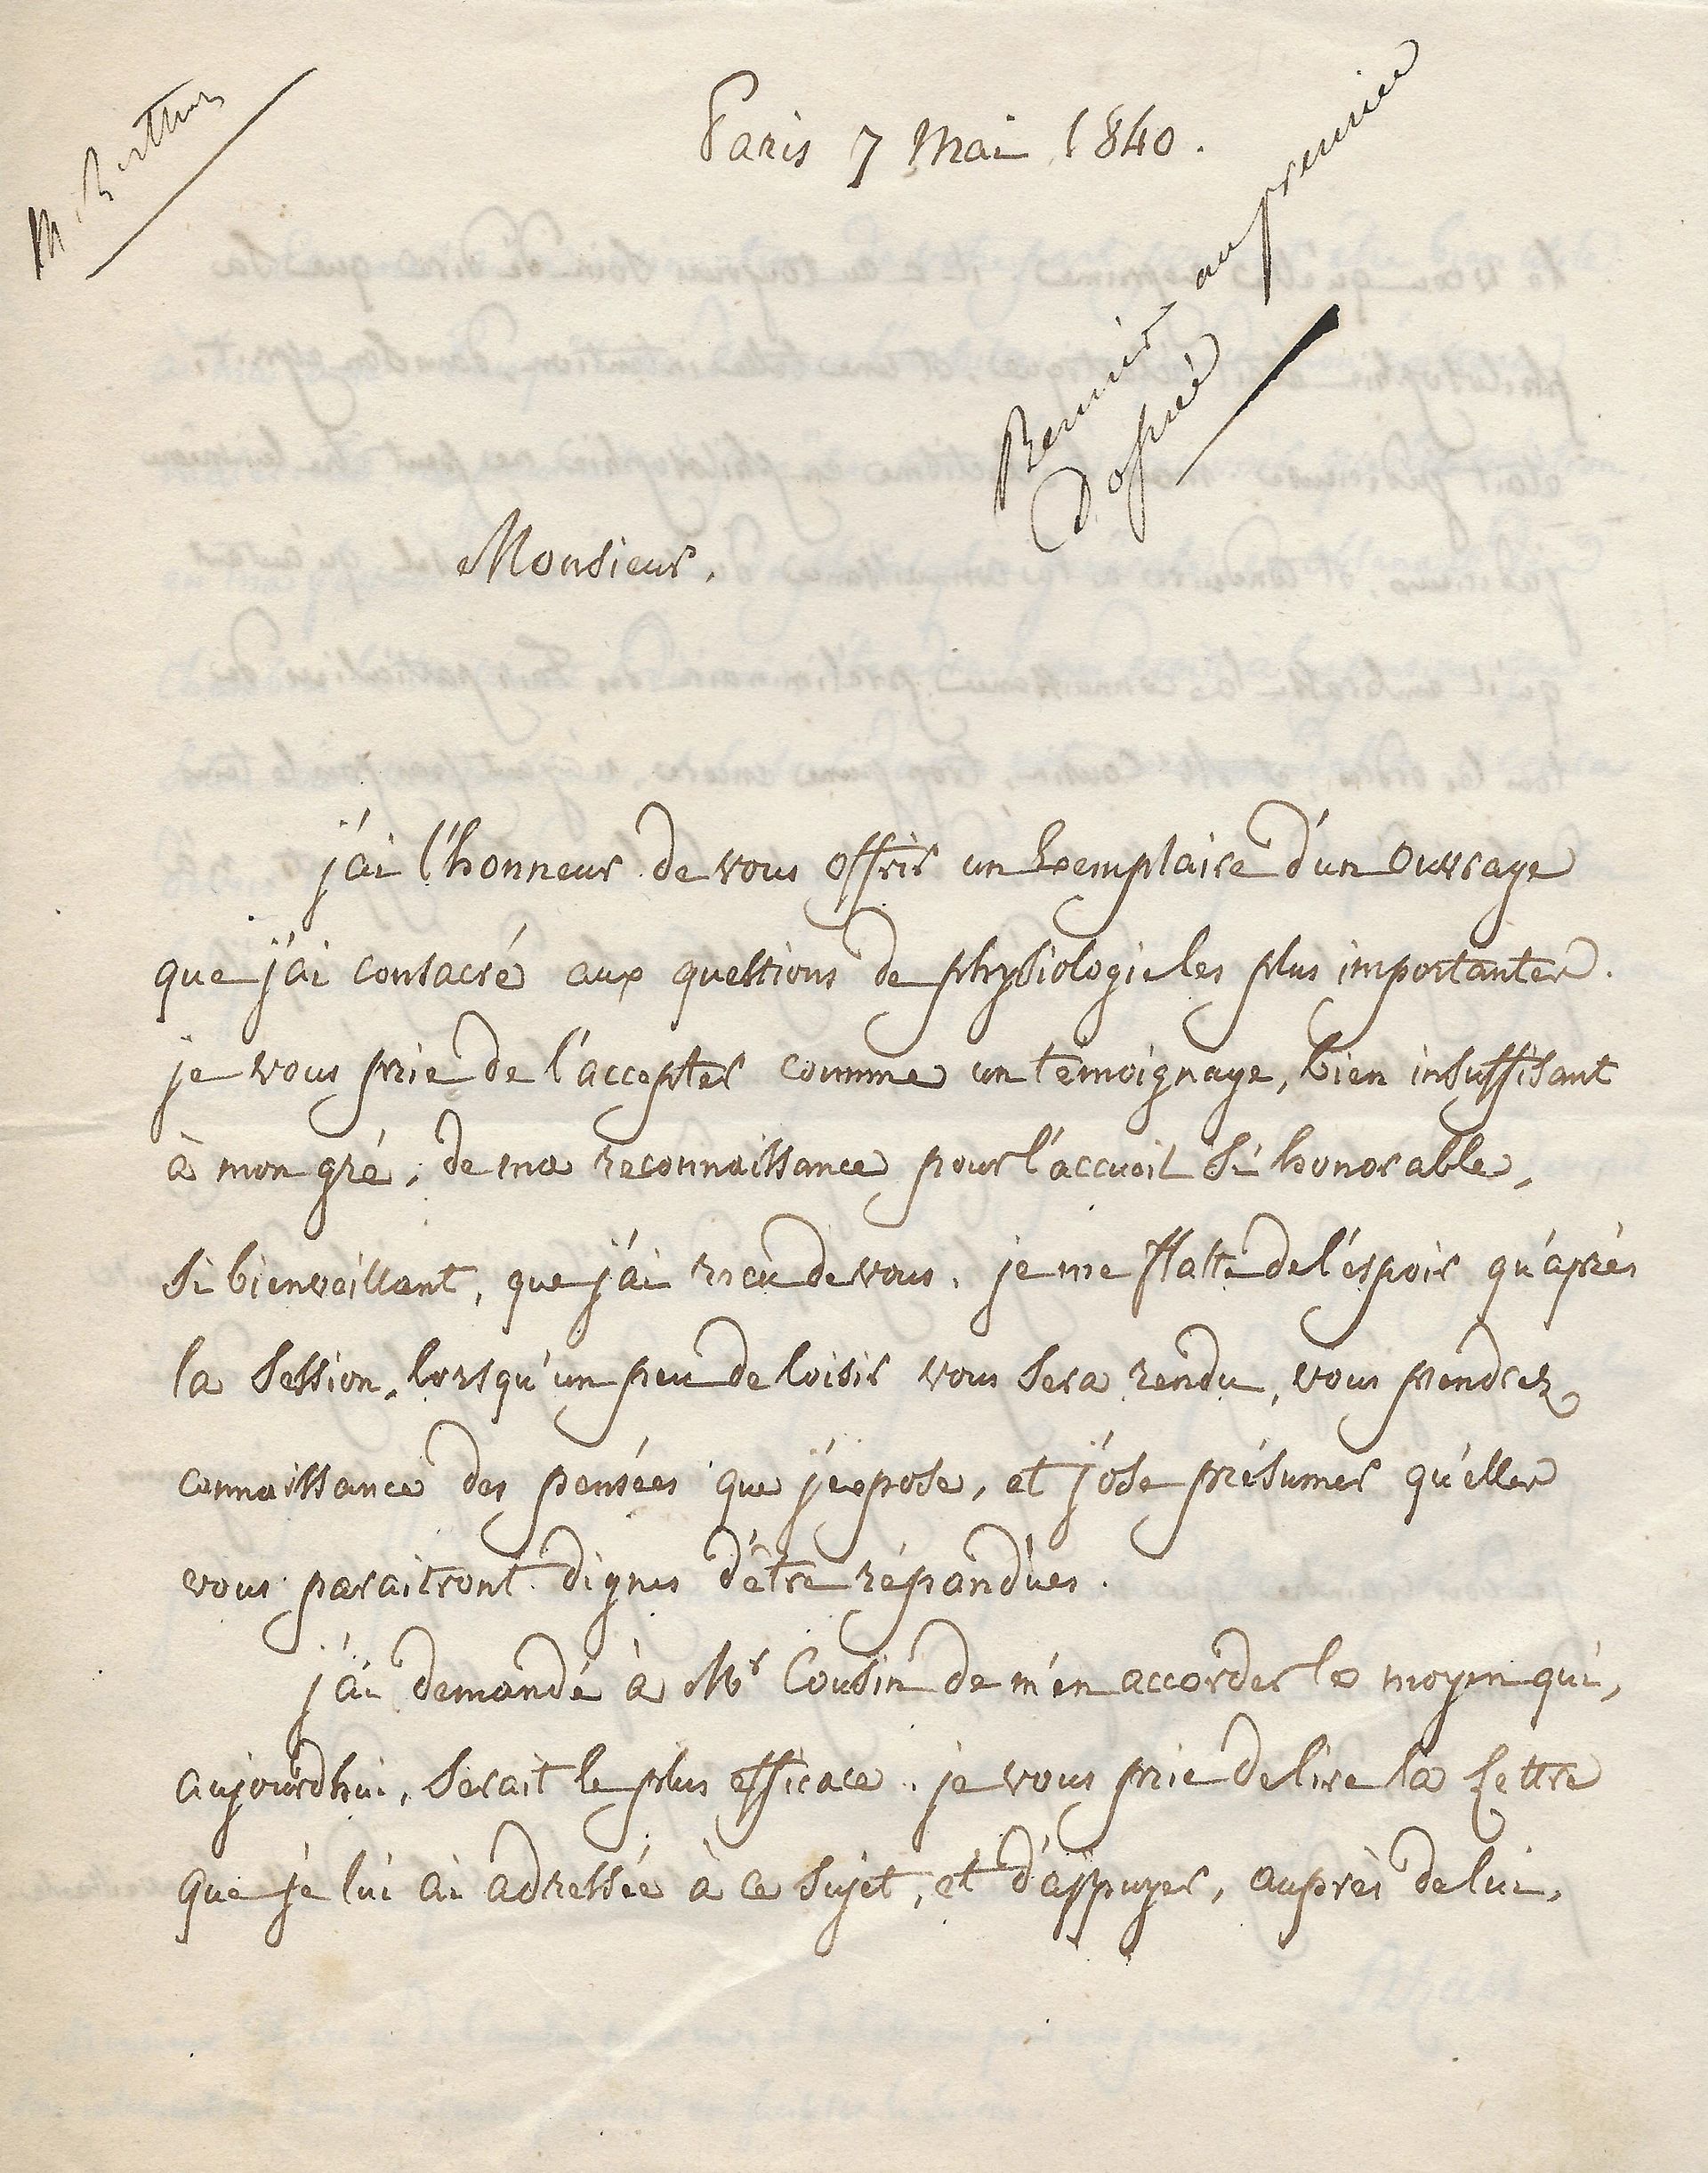 M. Berthier
Paris 7 Mai 1840.
Reunir au premier
dossier
Monsieur,
j'ai l'honneur de vous offrir un Exemplaire d'un Ouvrage
que j'ai consacré aux questions de physiologie les plus importantes.
je vous prie de l'accepter comme un temoignage, bien insuffisant
à mon gré, de ma reconnaissance pour l'accueil si honorable,
si bienveillant, que j'ai recu de vous. je me flatte de l'espoir qu'après
la Session, lorsqu'un peu de loisir vous sera rendu, vous prendrez
connaissance des pensées que j'expose, et j'ose présumer qu'elles
vous paraitront dignes d'être répandues.
j'ai demandé à Mr Cousin de m'en accorder le moyen qui,
aujourd'hui, serait le plus efficace. je vous prie de lire la Lettre
que je lui ai adressée à ce sujet, et d'appuyer, auprès de lui,